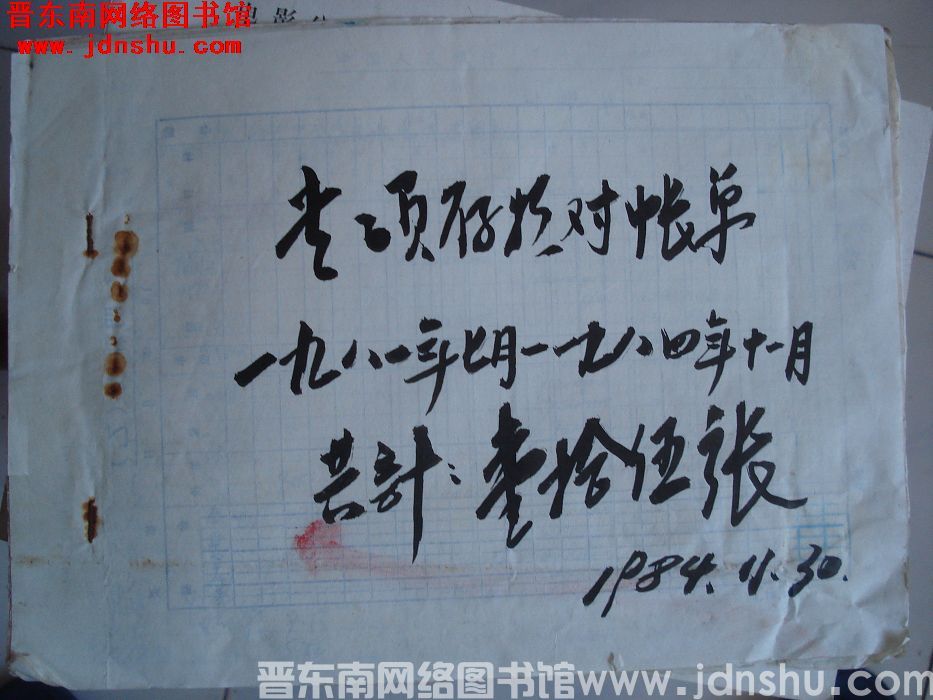 晋东南网络图书馆
www.jdnshu.com
专项存款对帐单
一九八一年七月一一九八四年十一月
共计：壹拾伍张
1984.11.30.
晋东南网络图书馆www.jdnshu.com